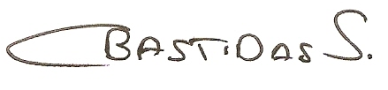 CBASTIDAS S.